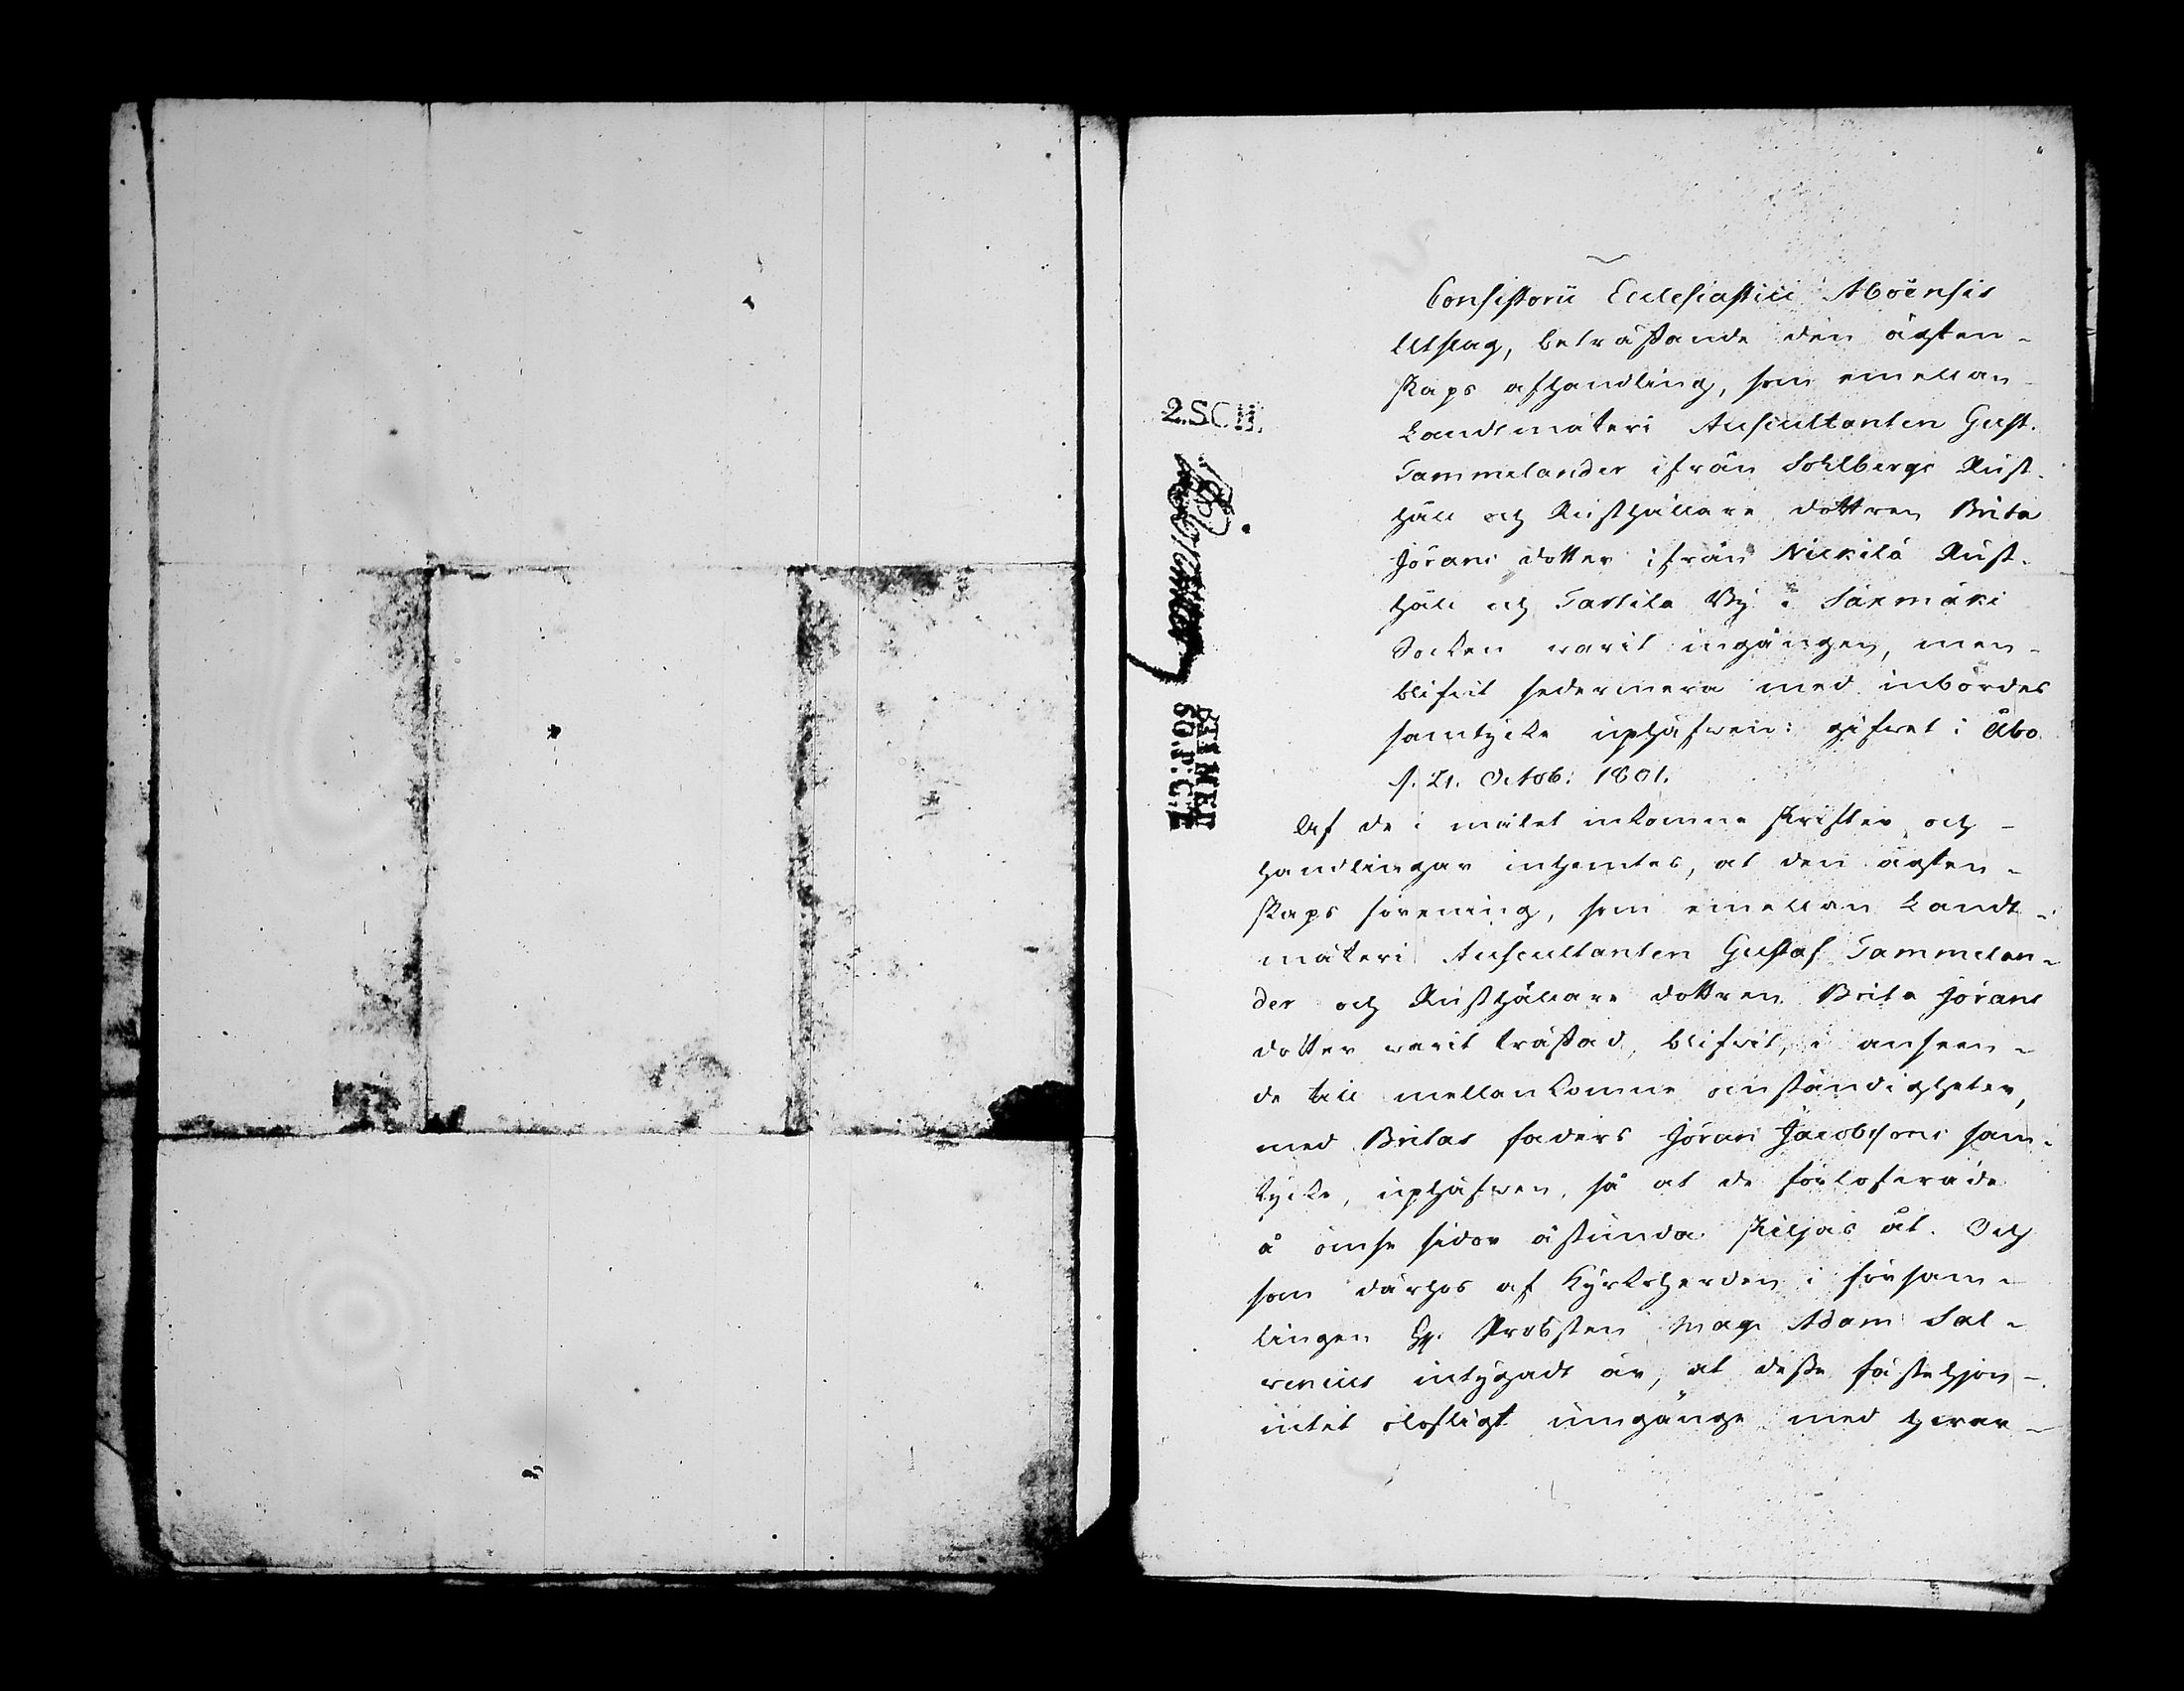 Consistorii Ecclesiastici Aboënsis
Utslag, beträffande den ägten-
skaps afhandling, som emellan
Landtmäteri Auscultanten Gust.
Tammelander ifrån Sohlbergs Rust-
håll och Rusthållare dottren Brita
Jörans dotter ifrån Nickilä Rust-
håll och Tarttila By i Säxmäki
Socken varit ingången, men
blifvit sedermera med inbördes
samtycke uphäfven: gifvet i Åbo
d. 21. Octob: 1801.
Af de i målet inkomne skrifter och
handlingar inhemtes, at den ägten-
skaps förening, som emellan Landt-
mäteri Auscultanten Gustaf Tammelan-
der och Rusthållare dottren Brita Jörans
dotter varit träffad, blifvit, i anseen-
de till mellankomne omständigheter,
med Britas faders Jöran Jacobssons sam-
tycke, uphäfven, så at de förlofvade
å ömse sidor åstunda skiljas åt. Och
som därhos af Kyrkoherden i försam-
lingen Hr Probsten Mag. Adam Sal-
venius intygadt är, at desse fästehjon
intet olofligt umgänge med hvar-
2.SCH.